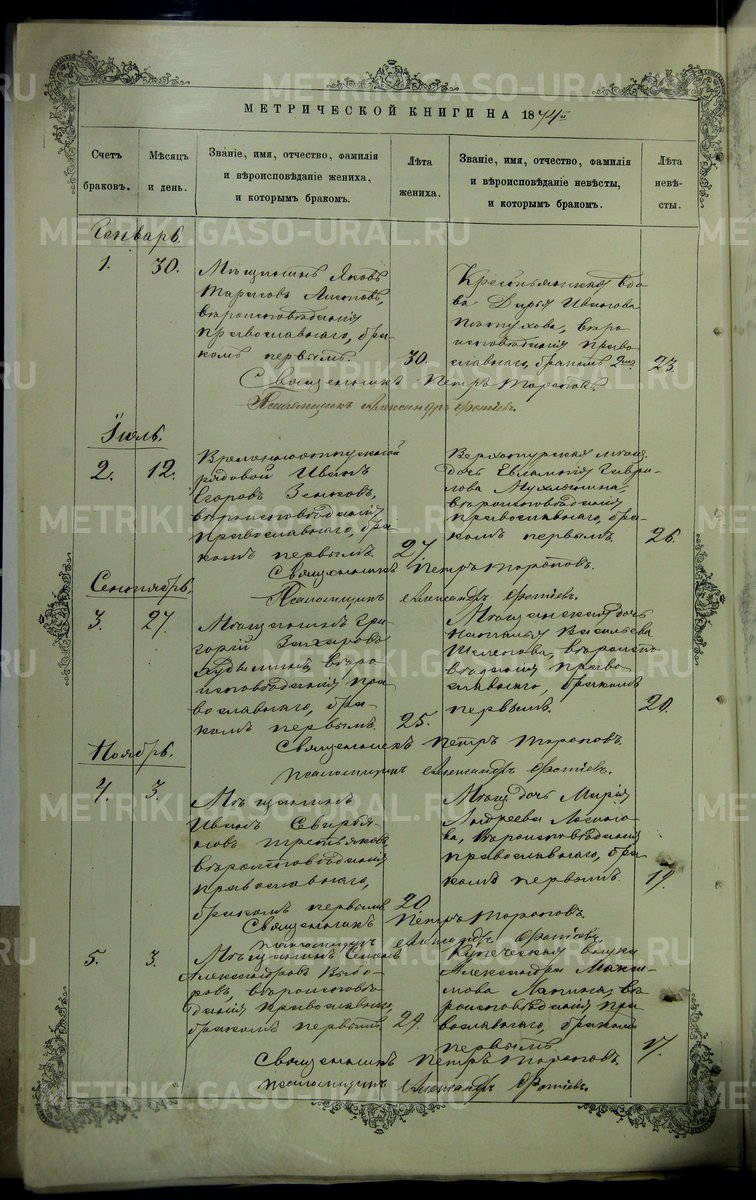 METRIKI.GASO-URAL.RU
МЕТРИЧЕСКОЙ КНИГИ НА 1874й
Счетъ браковъ.
Мѣсяцъ и день.
Званіе, имя, отчество, фамилія
и вѣроисповѣданіе жениха,
и которымъ бракомъ.
Лѣта
жениха.
Званіе, имя, отчество, фамилія
и вѣроисповѣданіе невѣсты,
и которымъ бракомъ.
Лѣта
невѣ-
сты.
Генварь.
1. 30.
Мѣщанинъ Яковъ
Тарасовъ
вѣроисповѣданія
православнаго, бра-
комъ первымъ.
30.
Крестьянская вдо-
ва Дарья Иванова
Пастухова, вѣро
исповѣданія право-
славнаго, бракомъ 2мъ.
23.
Священникъ Петръ Торопов.
Псаломщикъ Александръ Фотіев.
Іюль.
2. 12.
Временноотпускной
рядовой Иванъ
Егоровъ Зенковъ,
вѣроисповѣданія
православнаго, бра-
комъ первымъ.
27.
Верхотурская мѣщ.
дочь Евлампія Гаври-
лова Мухлынина,
вѣроисповѣданія
православнаго, бра-
комъ первымъ.
26.
Священникъ Петръ Торопов.
Псаломщикъ Александръ Фотіев.
Сентябрь.
3. 27.
Мѣщанинъ Гри-
горій Захаровъ
вѣро
исповѣданія пра-
вославнаго, бра-
комъ первымъ.
25.
Мѣщанская дочь
Наталья Васильева
вѣроиспо-
вѣданія право-
славнаго, бракомъ
первымъ.
20.
Священникъ Петръ Торопов.
Псаломщикъ Александръ Фотіев.
Ноябрь.
4. 3.
Мѣщанинъ
Иванъ Свирья-
новъ Третьяковъ,
вѣроисповѣданія
православнаго,
бракомъ первымъ
20.
Мѣщ. дочь Марія
Андреева Логино-
ва, вѣроисповѣданія
православнаго, бра-
комъ первымъ.
19.
Священникъ Петръ Торопов.
Псаломщикъ Александръ Фотіев.
5. 3.
Мѣщанинъ Семенъ
Александровъ Выбо-
ровъ, вѣроисповѣ-
данія православнаго,
бракомъ первымъ.
29.
Купеческая внука
Александра Макси-
мова Лапина, вѣ-
роисповѣданія пра-
вославнаго, бракомъ
первымъ
17.
Священникъ Петръ Торопов.
Псаломщикъ Александръ Фотіев.